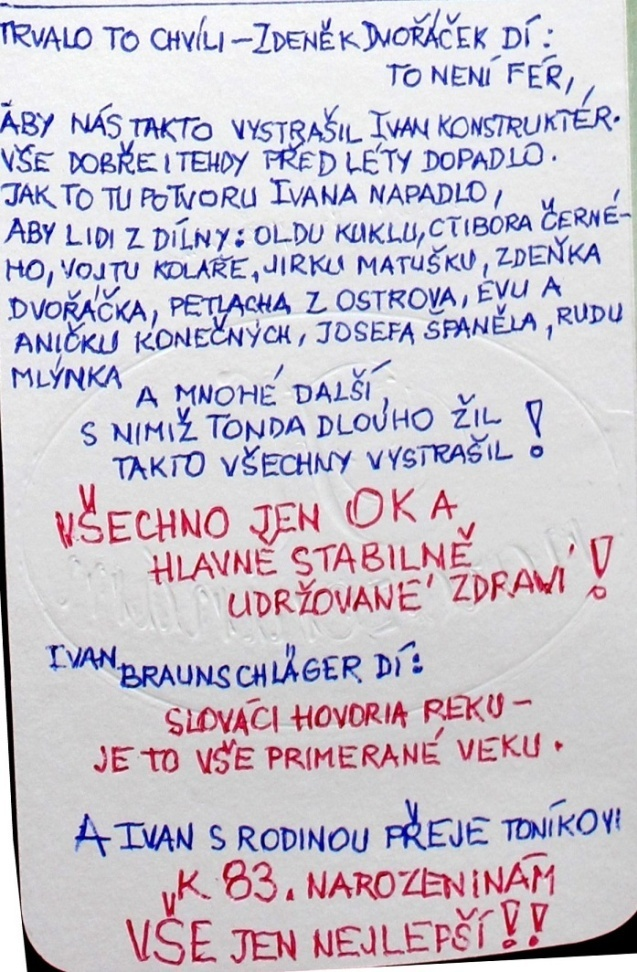 TRVALO TO CHVÍLI – ZDENĚK DVOŘÁČEK DÍ:
TO NENÍ FÉR,
ABY NÁS TAKTO VYSTRAŠIL IVAN KONSTRUKTÉR.
VŠE DOBŘE I TEHDY PŘED LÉTY DOPADLO.
JAK TO TU POTVORU IVANA NAPADLO,
ABY LIDI Z DÍLNY: OLDU KUKLU, CTIBORA ČERNÉ-
HO, VOJTU KOLÁŘE, JIRKU MATUŠKU, ZDEŇKA
DVOŘÁČKA, PETLACHA Z OSTROVA, EVU A
ANIČKU KONEČNÝCH, JOSEFA ŠPANĚLA, RUDU
MLÝNKA
A MNOHÉ DALŠÍ,
S NIMIŽ TONDA DLOUHO ŽIL
TAKTO VŠECHNY VYSTRAŠIL!
VŠECHNO JEN OK A
HLAVNĚ STABILNĚ
UDRŽOVANÉ ZDRAVÍ!
IVAN BRAUNSCHLÄGER DÍ:
SLOVÁCI HOVORIA REKU –
JE TO VŠE PRIMERANÉ VEKU.
A IVAN S RODINOU PŘEJE TONÍKOVI
K 83. NAROZENINÁM
VŠE JEN NEJLEPŠÍ!!